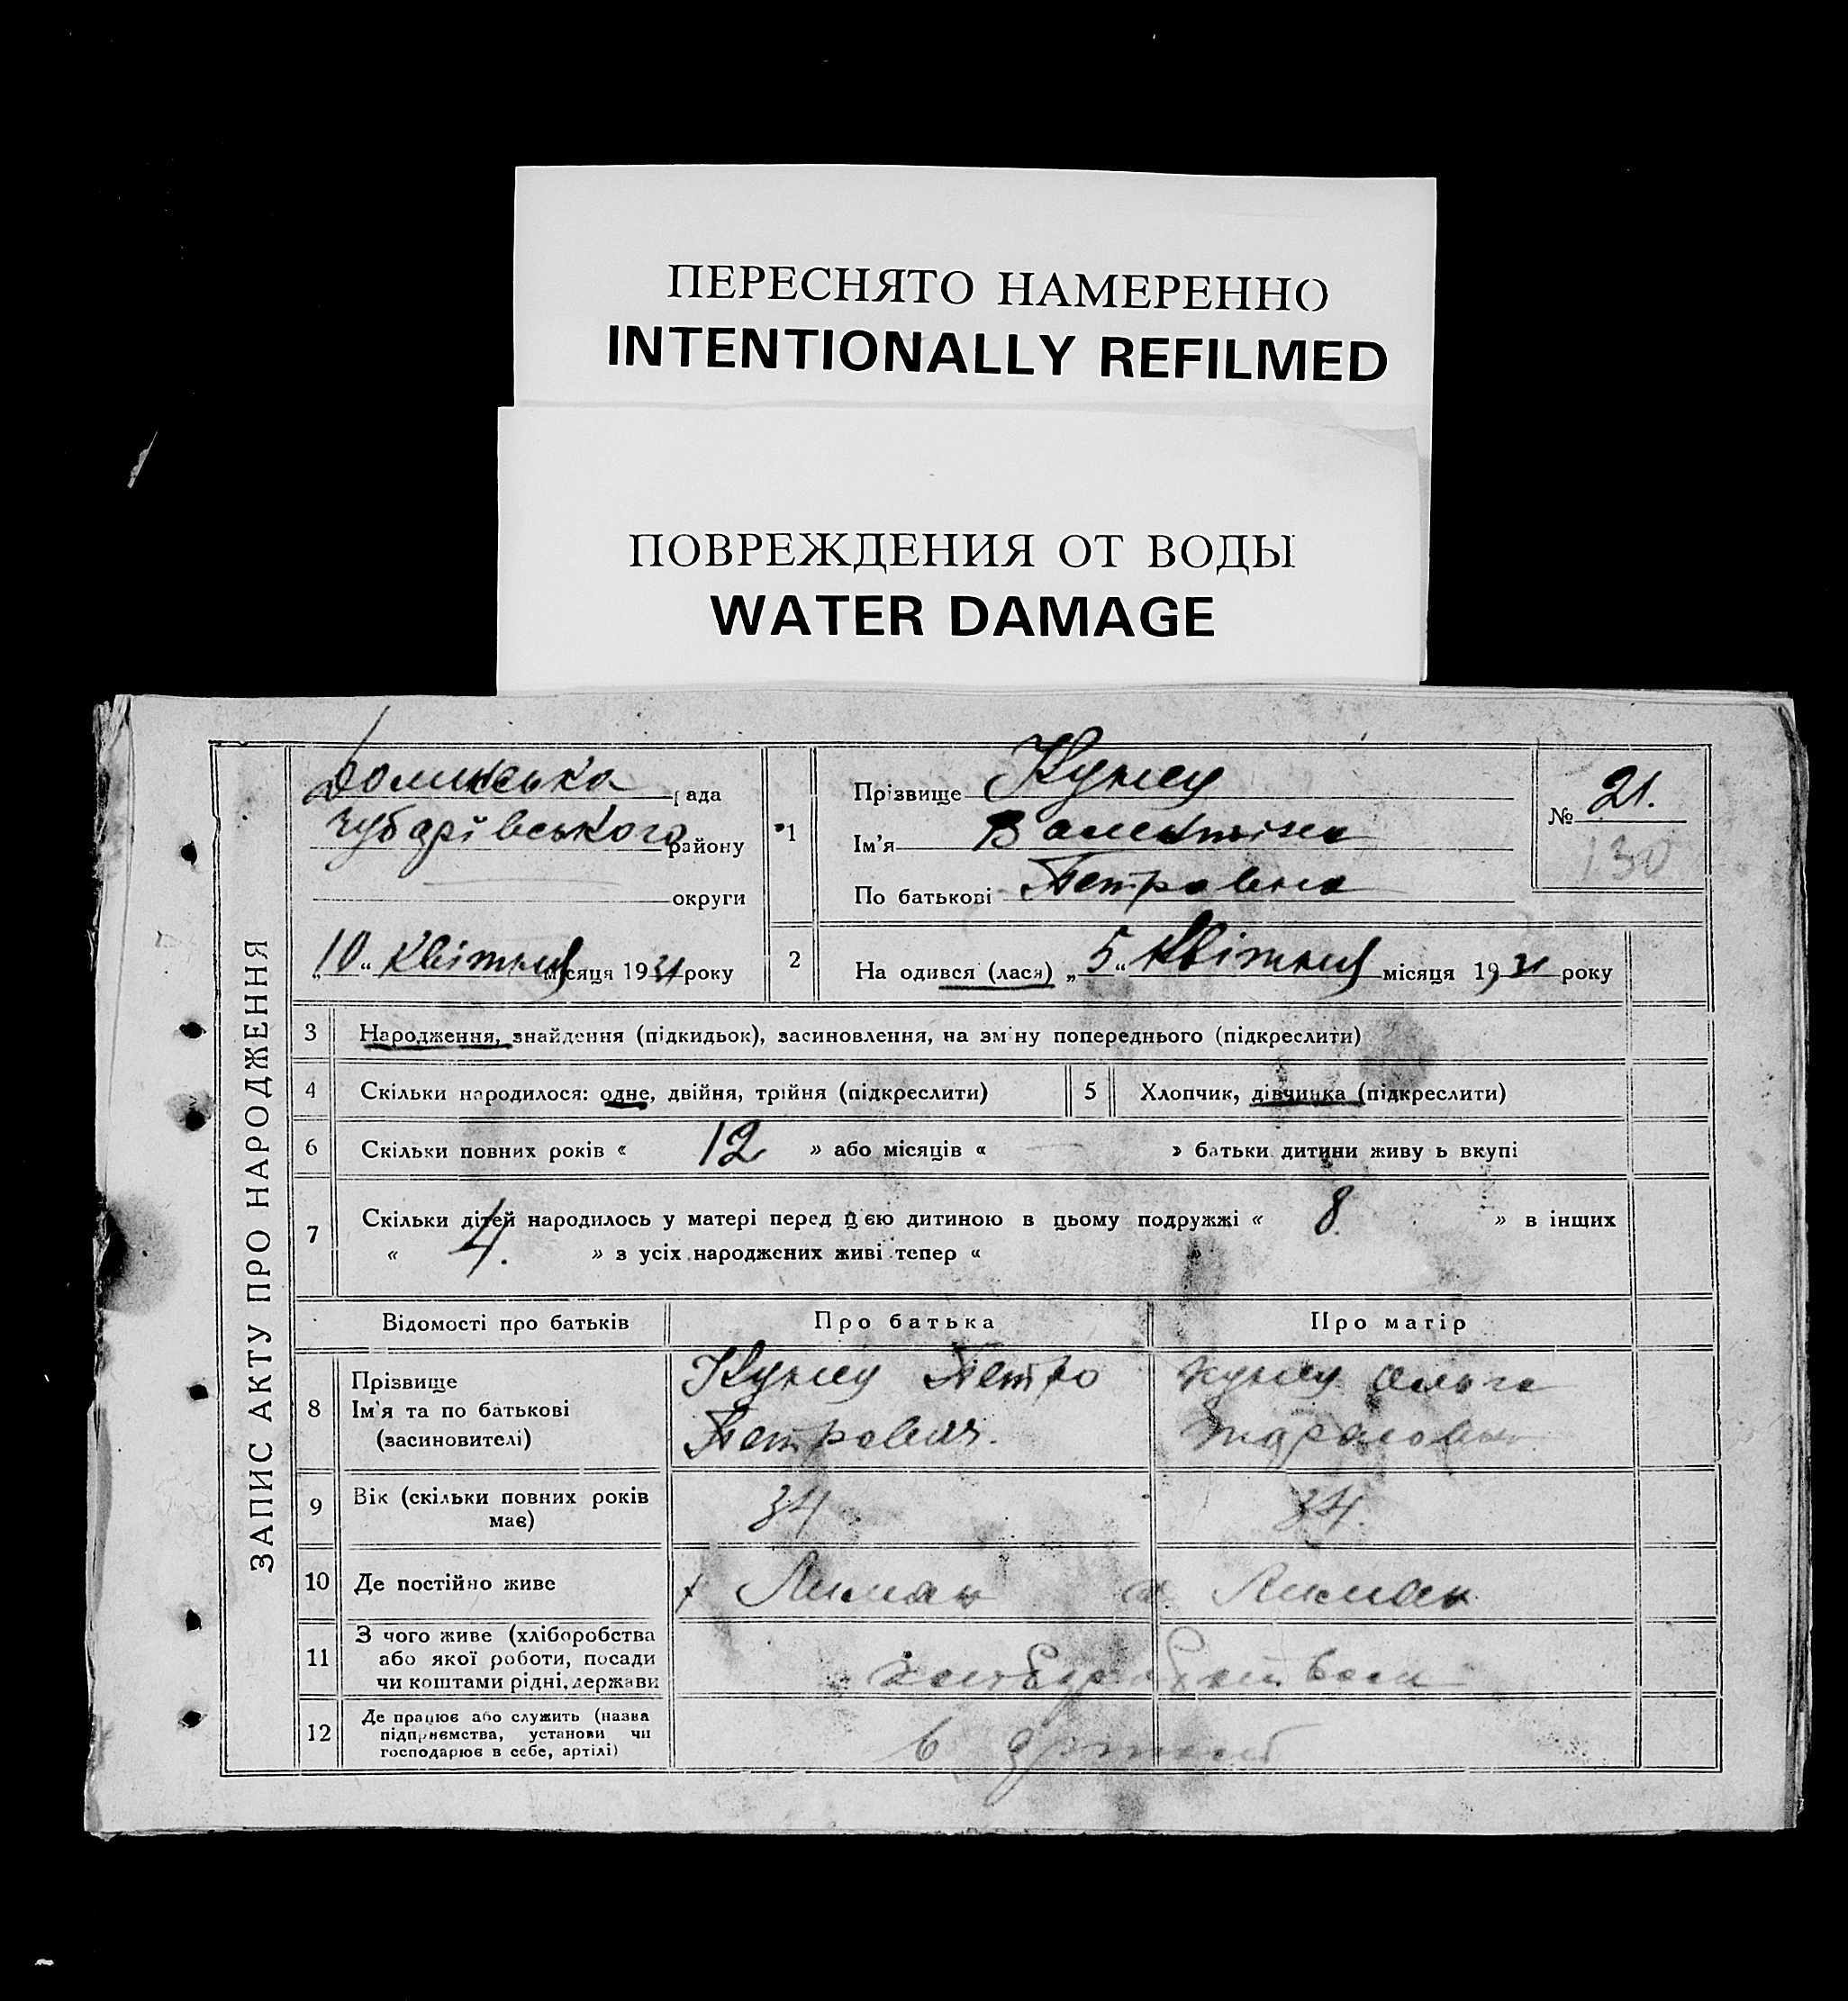 ПЕРЕСНЯТО НАМЕРЕННО
INTENTIONALLY REFILMED
ПОВРЕЖДЕНИЯ ОТ ВОДЫ
WATER DAMAGE
ЗАПИС АКТУ ПРО НАРОДЖЕННЯ
рада
Чубарівського району
округи
„10“ Квітня місяця 1931 року
1
Прізвище
Ім'я Валентина
По батькові Петровна
№ 21.
130
2
На одився (лася) „5“ Квітня місяця 1931 року
3 Народження, знайдення (підкидьок), засиновлення, на зм ну попереднього (підкреслити)
4 Скільки народилося: одне, двійня, трійня (підкреслити) 5 Хлопчик, дівчинка (підкреслити)
6 Скільки повних років « 12 » або місяців « — » батьки дитини живу ь вкупі
7 Скільки дітей народилось у матері перед цією дитиною в цьому подружжі « 8 » в інших
« 4. » з усіх народжених живі тепер «
Відомості про батьків Про батька Про матір
8 Прізвище
Ім'я та по батькові
(засиновителі)
Петро
Петрович.
Ольга
9 Вік (скільки повних років
має)
34 34.
10 Де постійно живе Лиман Лиман
11 З чого живе (хліборобства
або якої роботи, посади
чи коштами рідні, держави
12 Де працює або служить (назва
підприємства, установи чи
господарює в себе, артілі)
в артілі